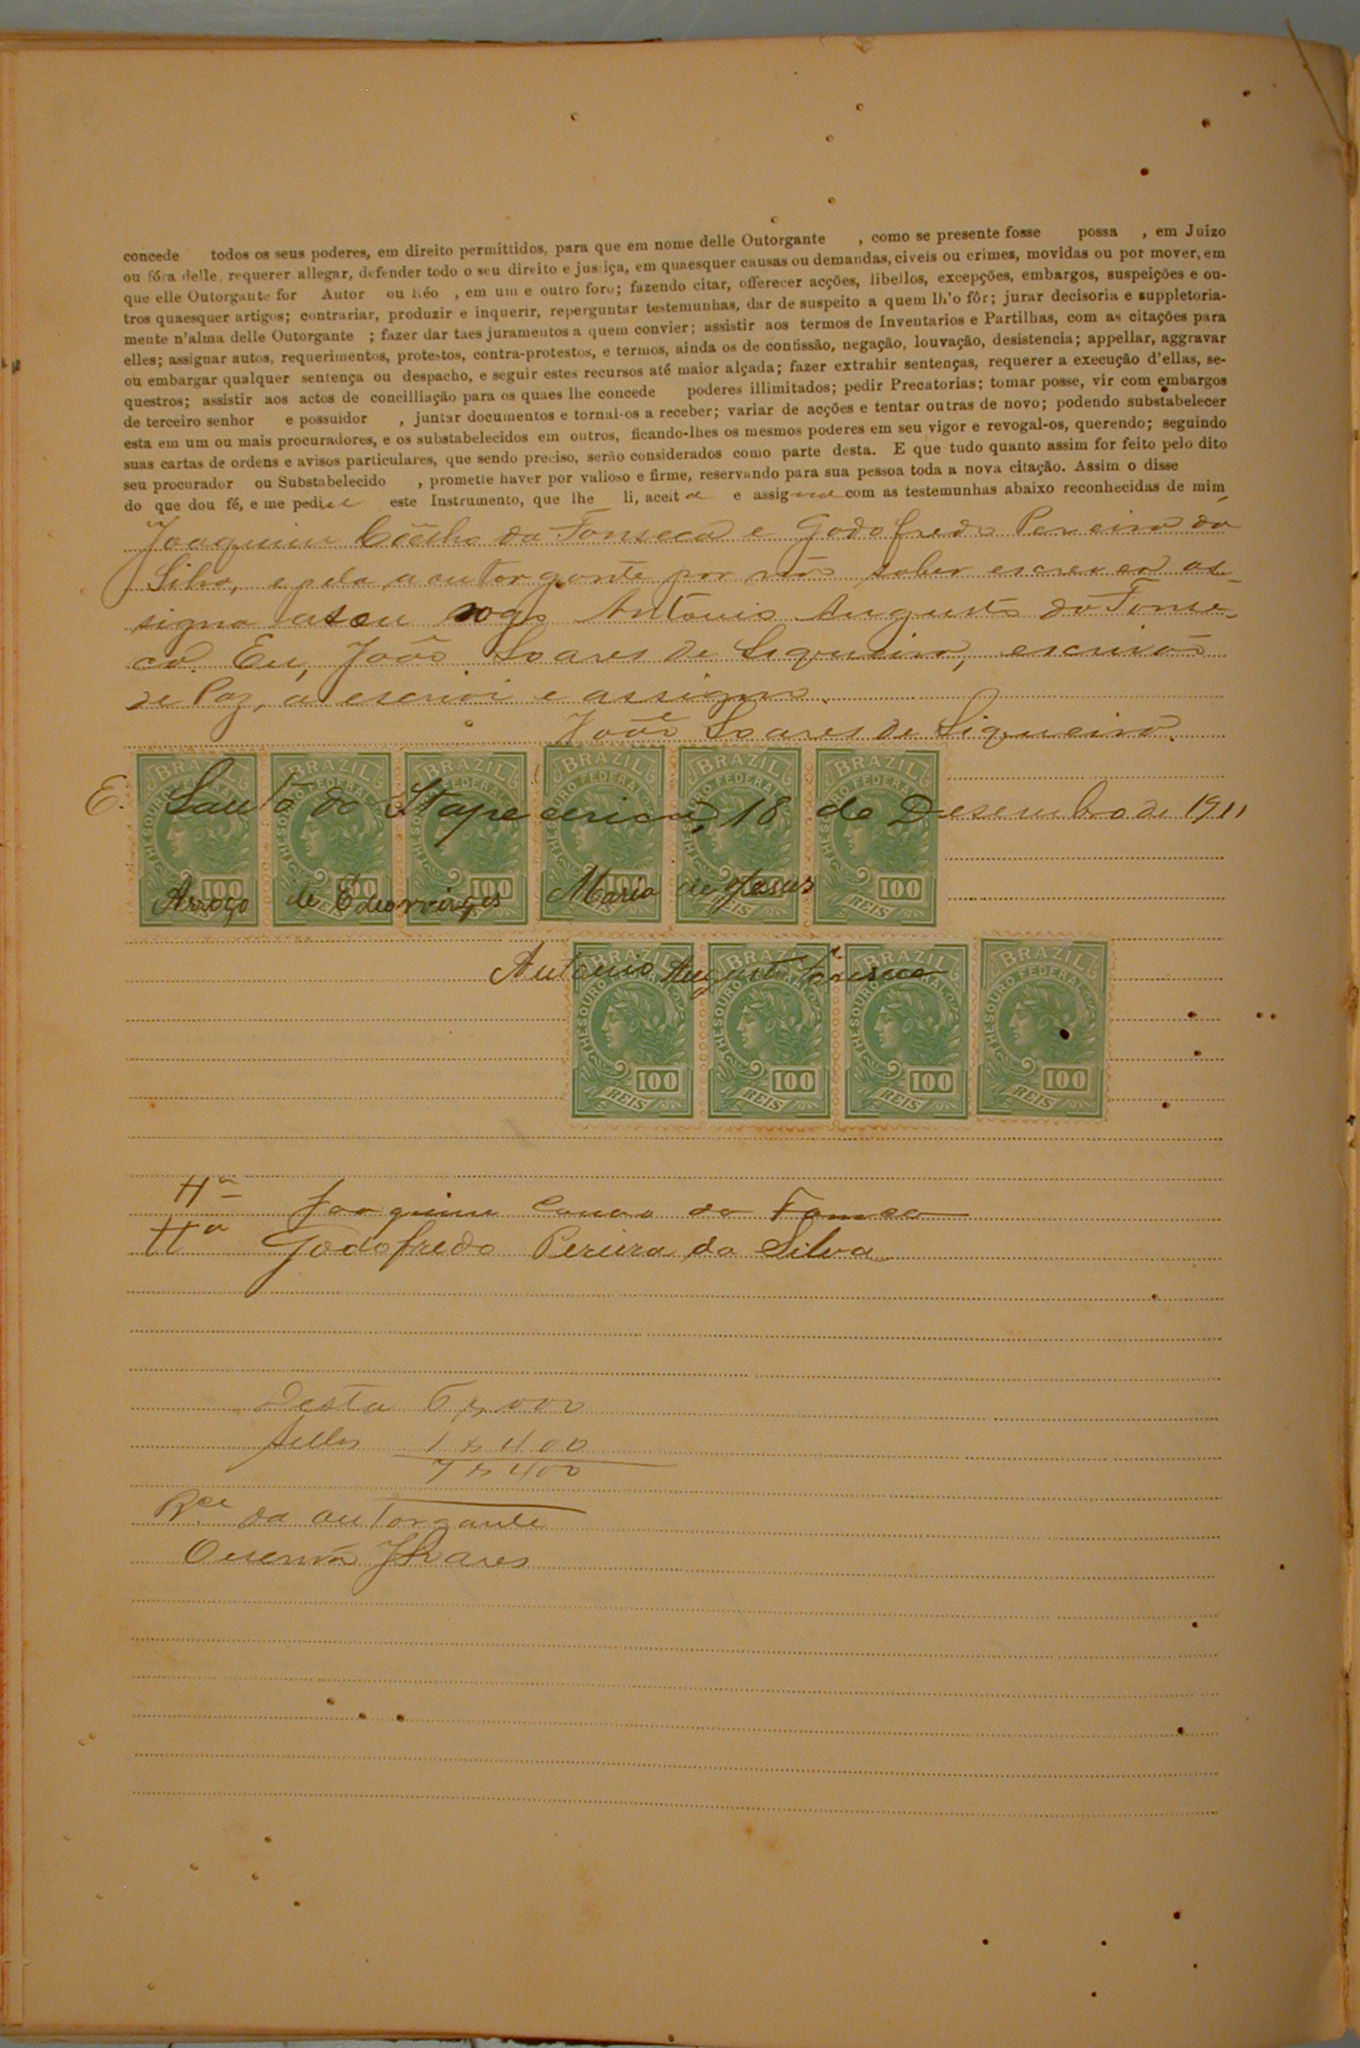 concede todos os seus poderes, em direito permittidos, para que em nome delle Outorgante , como se presente fosse possa , em Juizo
ou fóra delle, requerer allegar, defender todo o seu direito e justiça, em quaesquer causas ou demandas, civeis ou crimes, movidas ou por mover, em
que elle Outorgante for Autor ou Réo , em um e outro foro; fazendo citar, offerecer acções, libellos, excepções, embargos, suspeições e ou-
tros quaesquer artigos; contrariar, produzir e inquerir, reperguntar testemunhas, dar de suspeito a quem lh'o fôr; jurar decisoria e suppletoria-
mente n'alma delle Outorgante ; fazer dar taes juramentos a quem convier; assistir aos termos de Inventarios e Partilhas, com as citações para
elles; assignar autos, requerimentos, protestos, contra-protestos, e termos, ainda os de confissão, negação, louvação, desistencia; appellar, aggravar
ou embargar qualquer sentença ou despacho, e seguir estes recursos até maior alçada; fazer extrahir sentenças, requerer a execução d'ellas, se-
questros; assistir aos actos de concilliação para os quaes lhe concede poderes illimitados; pedir Precatorias; tomar posse, vir com embargos
de terceiro senhor e possuidor , juntar documentos e tornal-os a receber; variar de acções e tentar outras de novo; podendo substabelecer
esta em um ou mais procuradores, e os substabelecidos em outros, ficando-lhes os mesmos poderes em seu vigor e revogal-os, querendo; seguindo
suas cartas de ordens e avisos particulares, que sendo preciso, serão considerados como parte desta. E que tudo quanto assim for feito pelo dito
seu procurador ou Substabelecido , promette haver por valioso e firme, reservando para sua pessoa toda a nova citação. Assim o disse
do que dou fé, e me pediu este Instrumento, que lhe li, aceita e assigna com as testemunhas abaixo reconhecidas de mim
Joaquim Coêlho da Fonseca e Godofredo Pereira da
Silva, e pela a outorgante por não saber escrever as-
signa a seu rogo Antonio Augusto da Fonse-
ca. Eu, João Soares de Siqueira, escrivão
de Paz, a escrivi e assigno.
João Soares de Siqueira.
E. Santo da Itapecerica, 18 de Desembro de 1911
BRAZIL THESOURO FEDERAL 100 REIS
BRAZIL THESOURO FEDERAL 100 REIS
BRAZIL THESOURO FEDERAL 100 REIS
BRAZIL THESOURO FEDERAL 100 REIS
BRAZIL THESOURO FEDERAL 100 REIS
BRAZIL THESOURO FEDERAL 100 REIS
Arrogo de Edeorvirges Maria de Jesus
Antonio Augusto Fonseca
BRAZIL THESOURO FEDERAL 100 REIS
BRAZIL THESOURO FEDERAL 100 REIS
BRAZIL THESOURO FEDERAL 100 REIS
BRAZIL THESOURO FEDERAL 100 REIS
Joaquim da
Godofredo Pereira da Silva
Desta 6$000
Sellos 1$400
7$400
da outorgante
Soares